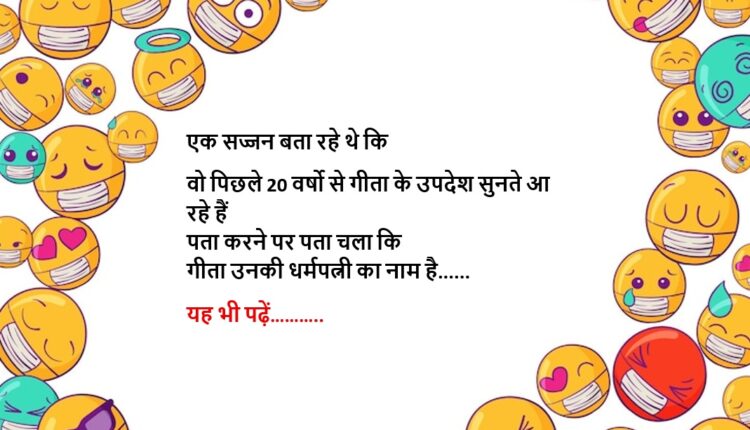 एक सज्जन बता रहे थे कि
वो पिछले 20 वर्षो से गीता के उपदेश सुनते आ
रहे हैं
पता करने पर पता चला कि
गीता उनकी धर्मपत्नी का नाम है......
यह भी पढ़ें...........